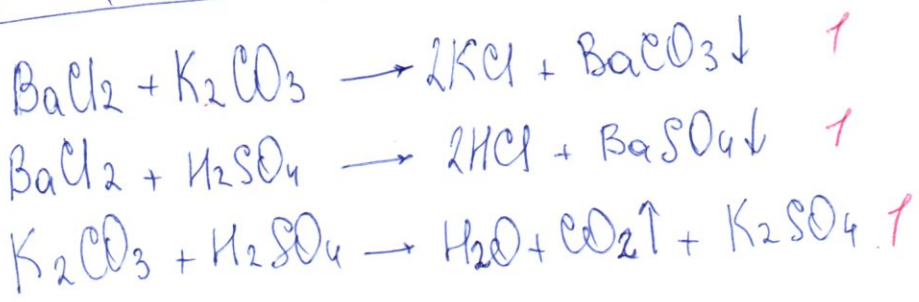 BaCl2 + K2CO3 → 2KCl + BaCO3↓ 1
BaCl2 + H2SO4 → 2HCl + BaSO4↓ 1
K2CO3 + H2SO4 → H2O + CO2↑ + K2SO4. 1